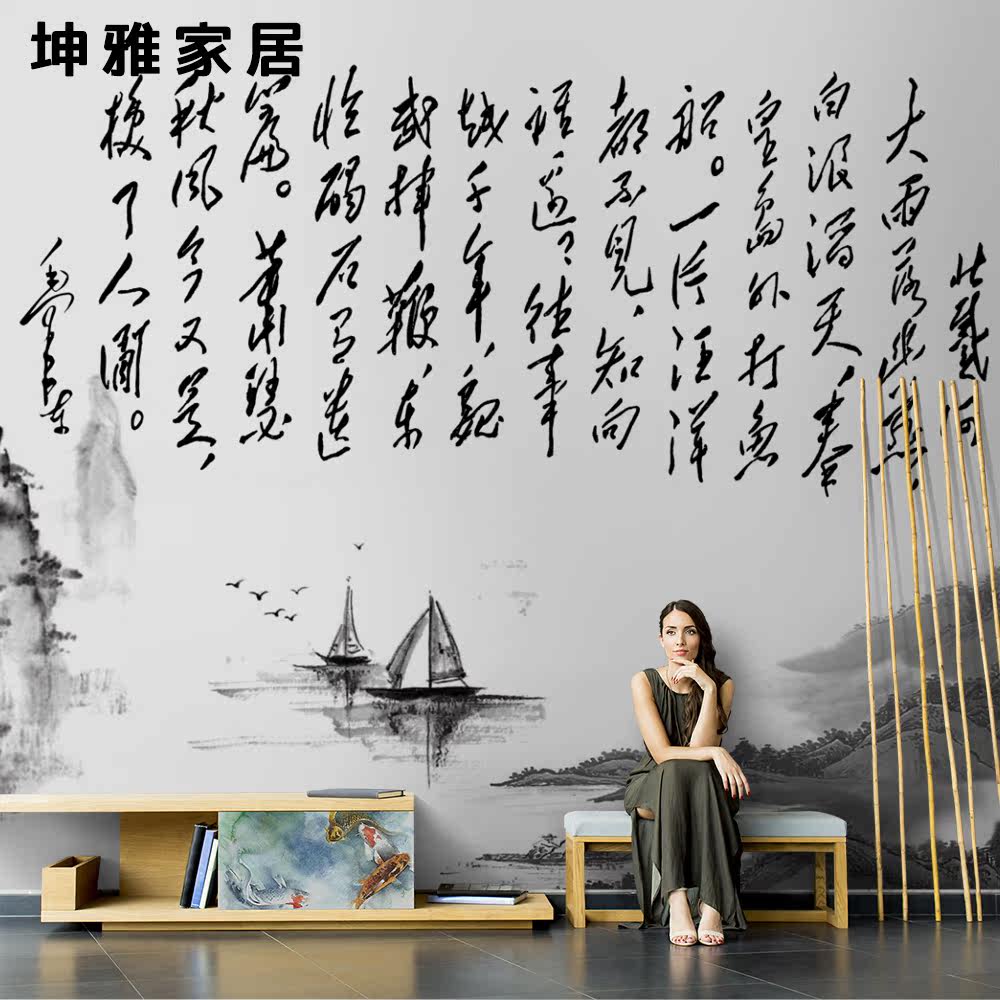 坤雅家居
北戴河
大雨落幽燕，
白浪滔天，秦
皇岛外打鱼
船。一片汪洋
都不见，知向
谁边？往事
越千年，魏
武挥鞭，东
临碣石有遗
篇。萧瑟
秋风今又是，
换了人间。
毛泽东